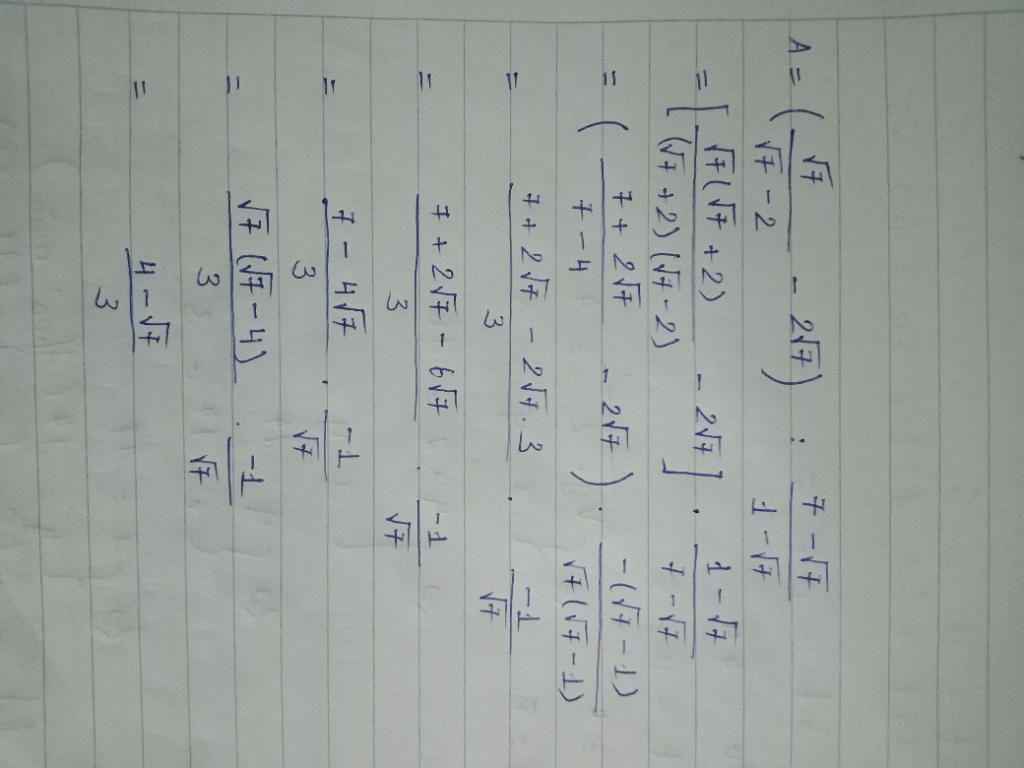 A = ( √7 / (√7 - 2) - 2√7 ) : (7 - √7) / (1 - √7)
= [ √7(√7 + 2) / ((√7 + 2)(√7 - 2)) - 2√7 ] . (1 - √7) / (7 - √7)
= ( (7 + 2√7) / (7 - 4) - 2√7 ) . -(√7 - 1) / (√7(√7 - 1))
= (7 + 2√7 - 2√7 . 3) / 3 . -1 / √7
= (7 + 2√7 - 6√7) / 3 . -1 / √7
= (7 - 4√7) / 3 . -1 / √7
= √7(√7 - 4) / 3 . -1 / √7
= (4 - √7) / 3